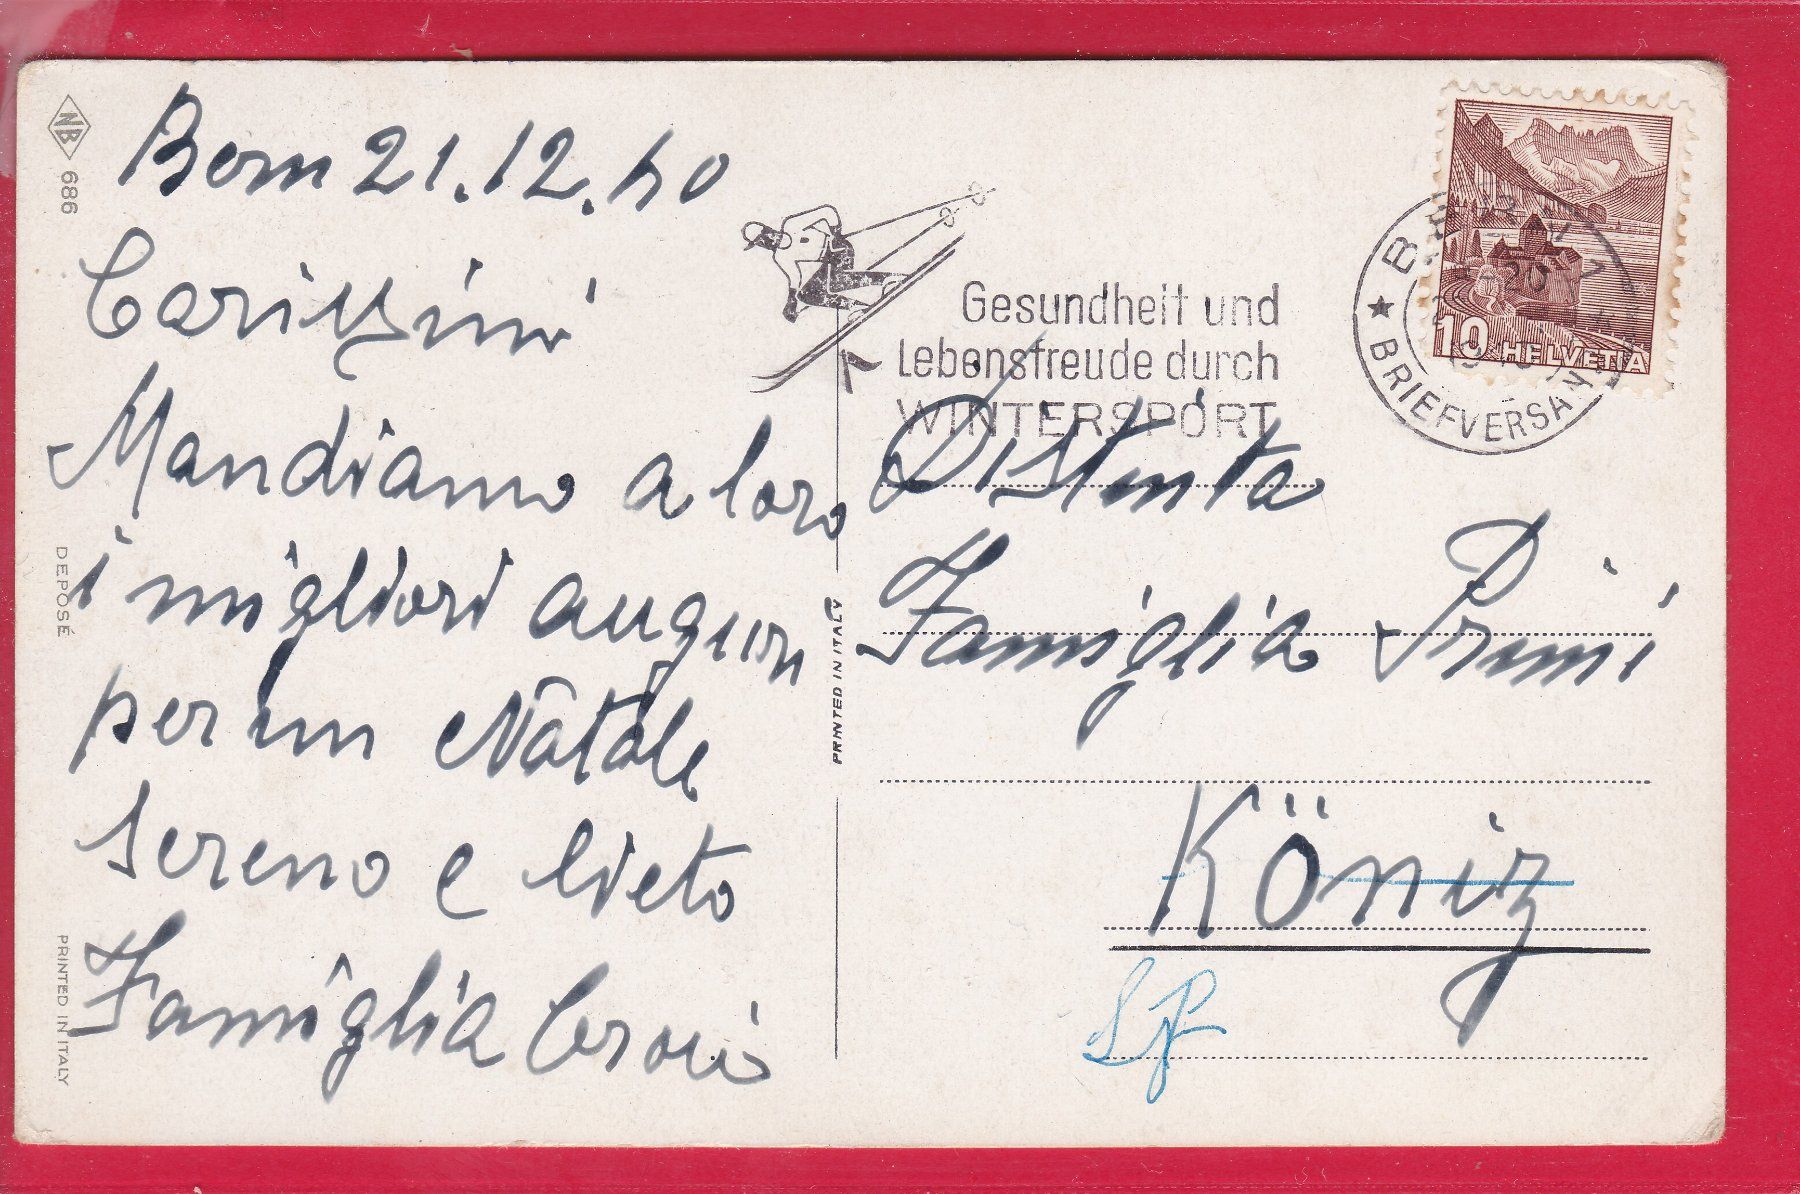 NB 686
DEPOSÉ
PRINTED IN ITALY
Bern 21.12.40
Carissimi
Mandiamo a loro
i migliori auguri
per un Natale
sereno e lieto
Famiglia
PRINTED IN ITALY
Gesundheit und
Lebensfreude durch
WINTERSPORT
BRIEFVERSAND
20
10 HELVETIA
Distinta
Famiglia Primi
Köniz